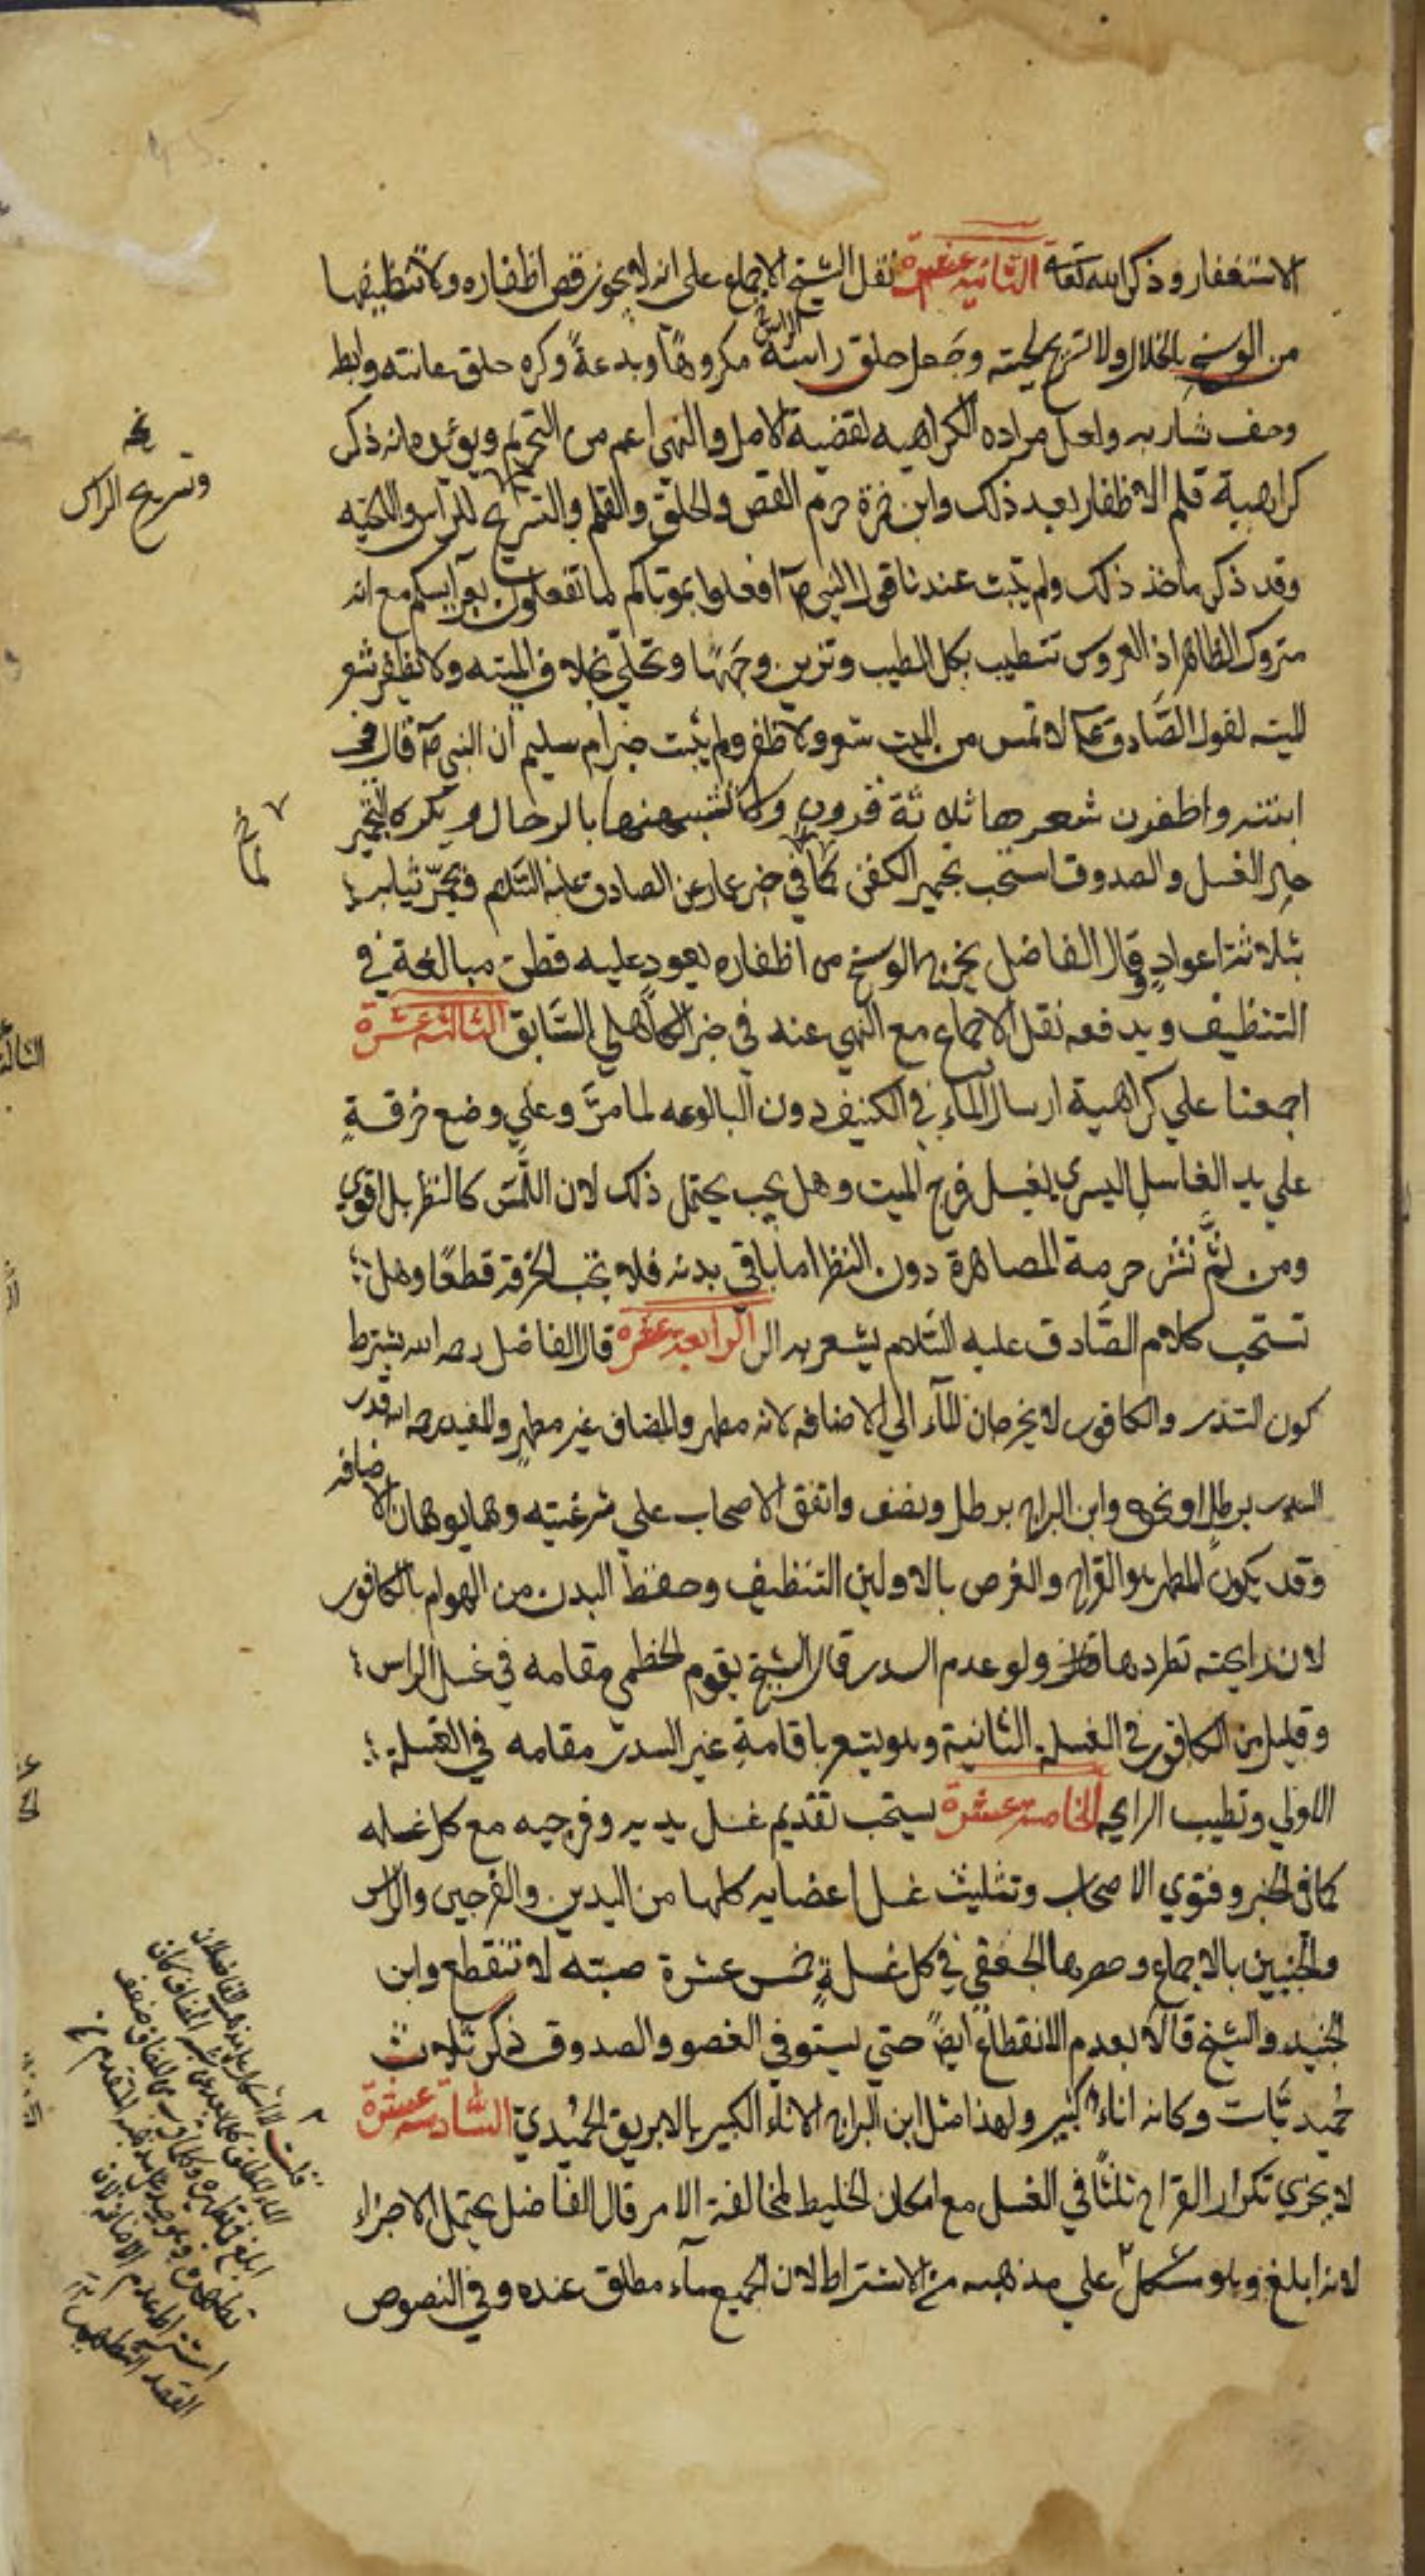 الاستغفار وذكر الله تعالى الثانية عشرة نقل الشيخ الاجماع على انه لا يجوز قص اظفاره ولا تنظيفها
من الوسخ بالخلال ولا تسريح لحيته وجعل حلق راسه مكروهًا وبدعةً وكره حلق عانته وابط
وحف شاربه ولعل مراده الكراهيه لقضية الاصل والنهي اعم من التحريم ويؤيده انه ذكر
كراهية قلم الاظفار بعد ذلك وابن حمزة حرم القص والحلق والقلم والتسريح للراس واللحيه
وقد ذكر ماخذ ذلك ولم يثبت عندنا قول النبي ص افعلوا بموتاكم لما تفعلون بعرايسكم مع انه
متروك الظاهر اذ العروس تتطيب بكل الطيب وتزين وجهها وتحلي بخلاف الميته ولا يظفر شعر
الميته لقول الصّادق ع لا تمس من الميت شعر ولا ظفر ولم يثبت خبر ام سليم ان النبي ص قال في
ابنته واظفرن شعرها ثلاثة قرون ولا تشبهنها بالرجال ويكره التجمير
حال الغسل والصدوق استحب تجمير الكفن كما في خبر عمار عن الصادق عليه السّلام وتجمّر ثيابه
بثلاثة اعوادٍ وقال الفاضل يخرج الوسخ من اظفاره بعودٍ عليه قطن مبالغة في
التنظيف ويدفعه نقل الاجماع مع النهي عنه في خبر الكاهلي السّابق الثالثة عشرة
اجمعنا علي كراهية ارسال الماء في الكنيف دون البالوعه لما مرّ وعلي وضع خرقةٍ
علي يد الغاسل اليسرى لغسل فرج الميت وهل يجب يحتمل ذلك لان اللّمس كالنظر بل اقوي
ومن ثَمَّ نشر حرمة المصاهرة دون النظر اما باقي بدنه فلا تجب الخرقة قطعًا وهل
تستحب كلام الصّادق عليه السّلام يشعر به الر الرابعة عشرة قال الفاضل رحمه الله يشترط
كون السّدر والكافور لا يخرجان الماء الي الاضافه لانه مطهر والمضاف غير مطهرٍ والمفيد رحمه الله قدر
السدر برطل او نحوه وابن البراج برطل ونصف واتفق الاصحاب علي شرغيته وهما يوهمان الاضافه
وقد يكون المطهر هو القراح والغرض بالاولين التنظيف وحفظ البدن من الهوام بالكافور
لان رايحته تطردها ولو عدم السدر قال الشيخ يقوم الخطمي مقامه في غسل الراس
وقليل من الكافور في الغسله الثانية وهو يشعر باقامةِ غير السدر مقامه في الغسلة
الاولي وتطيب الرايحه الخامسة عشرة يستحب تقديم غسل يديه وفرجيه مع كل غسله
كما في الخبر وفتوي الاصحاب وتثليث غسل اعضايه كلها من اليدين والفرجين والراس
والجنبين بالاجماع وحصرها الجعفي في كل غسلةٍ خمس عشرة صبته لا تنقطع وابن
الجنيد والشيخ قالا بعدم الانقطاع ايضًا حتي يستوفي العضو والصدوق ذكر ثلاث
حُميديّات وكانه اناء كبير ولهذا مثل ابن البراج الاناء الكبير بالابريق الحُميدي السّادسة عشرة
لا يجزي تكرار القراح ثلثًا في الغسل مع امكان الخليط لمخالفة الامر قال الفاضل يحتمل الاجزاء
لانه ابلغ وهو مشكل علي مذهبه من الاشتراط لان الجميع ماء مطلق عنده وفي النصوص
الراس
نخ
وتسريح الراس
كما
قلت لا اشكال
استراط عدم الاضافه لان
القصد التطهير